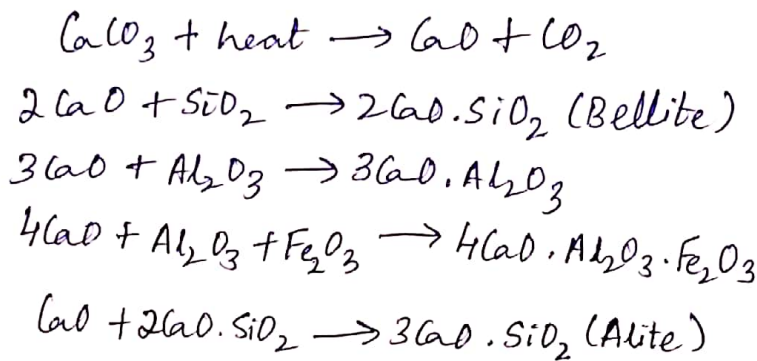 CaCO₃ + heat → CaO + CO₂
2CaO + SiO₂ → 2CaO.SiO₂ (Bellite)
3CaO + Al₂O₃ → 3CaO.Al₂O₃
4CaO + Al₂O₃ + Fe₂O₃ → 4CaO.Al₂O₃.Fe₂O₃
CaO + 2CaO.SiO₂ → 3CaO.SiO₂ (Alite)